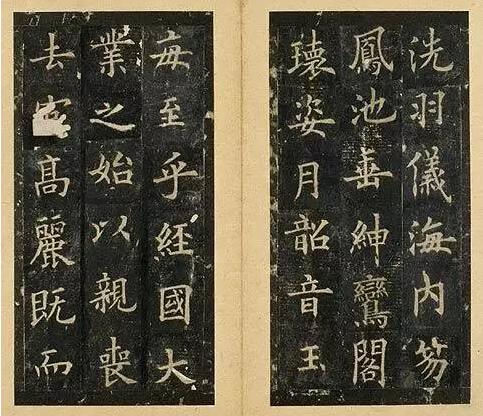 洗羽儀海內笏
鳳池垂紳鸞閣
瓌姿月韶音玉
每至乎經國大
業之始以親喪
去髙麗既而